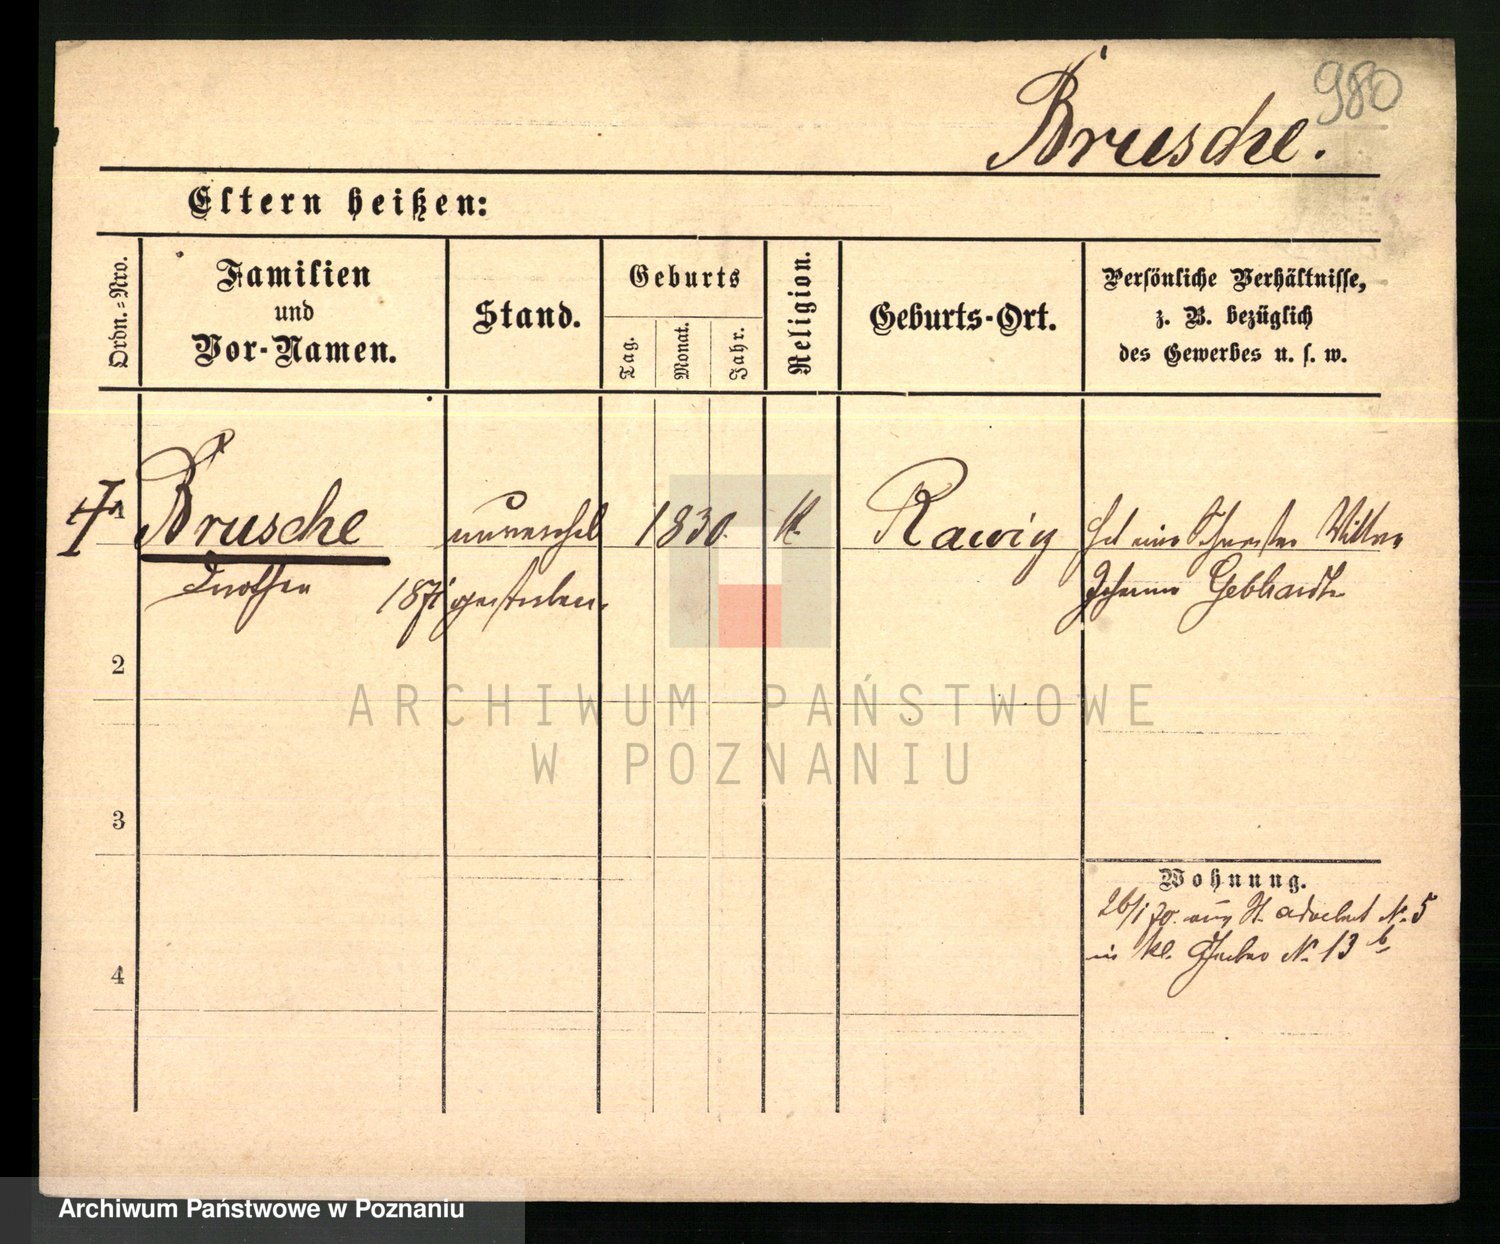 980
Brusche.
Eltern heißen:
Ordn.-Nro.
Familien
und
Vor-Namen.
Stand.
Geburts
Tag.
Monat.
Jahr.
Religion.
Geburts-Ort.
Persönliche Verhältnisse,
z. B. bezüglich
des Gewerbes u. s. w.
1 Brusche unverehel 1830. K. Rawicz hat eine Schwester Wittwe
Dorothea 1871 gestorben. Johanna Gebhardt
2
3
4
Wohnung.
26/1 70. aus St. Adalbert N. 5
in kl. Gerber N. 13 b
ARCHIWUM PAŃSTWOWE
W POZNANIU
Archiwum Państwowe w Poznaniu